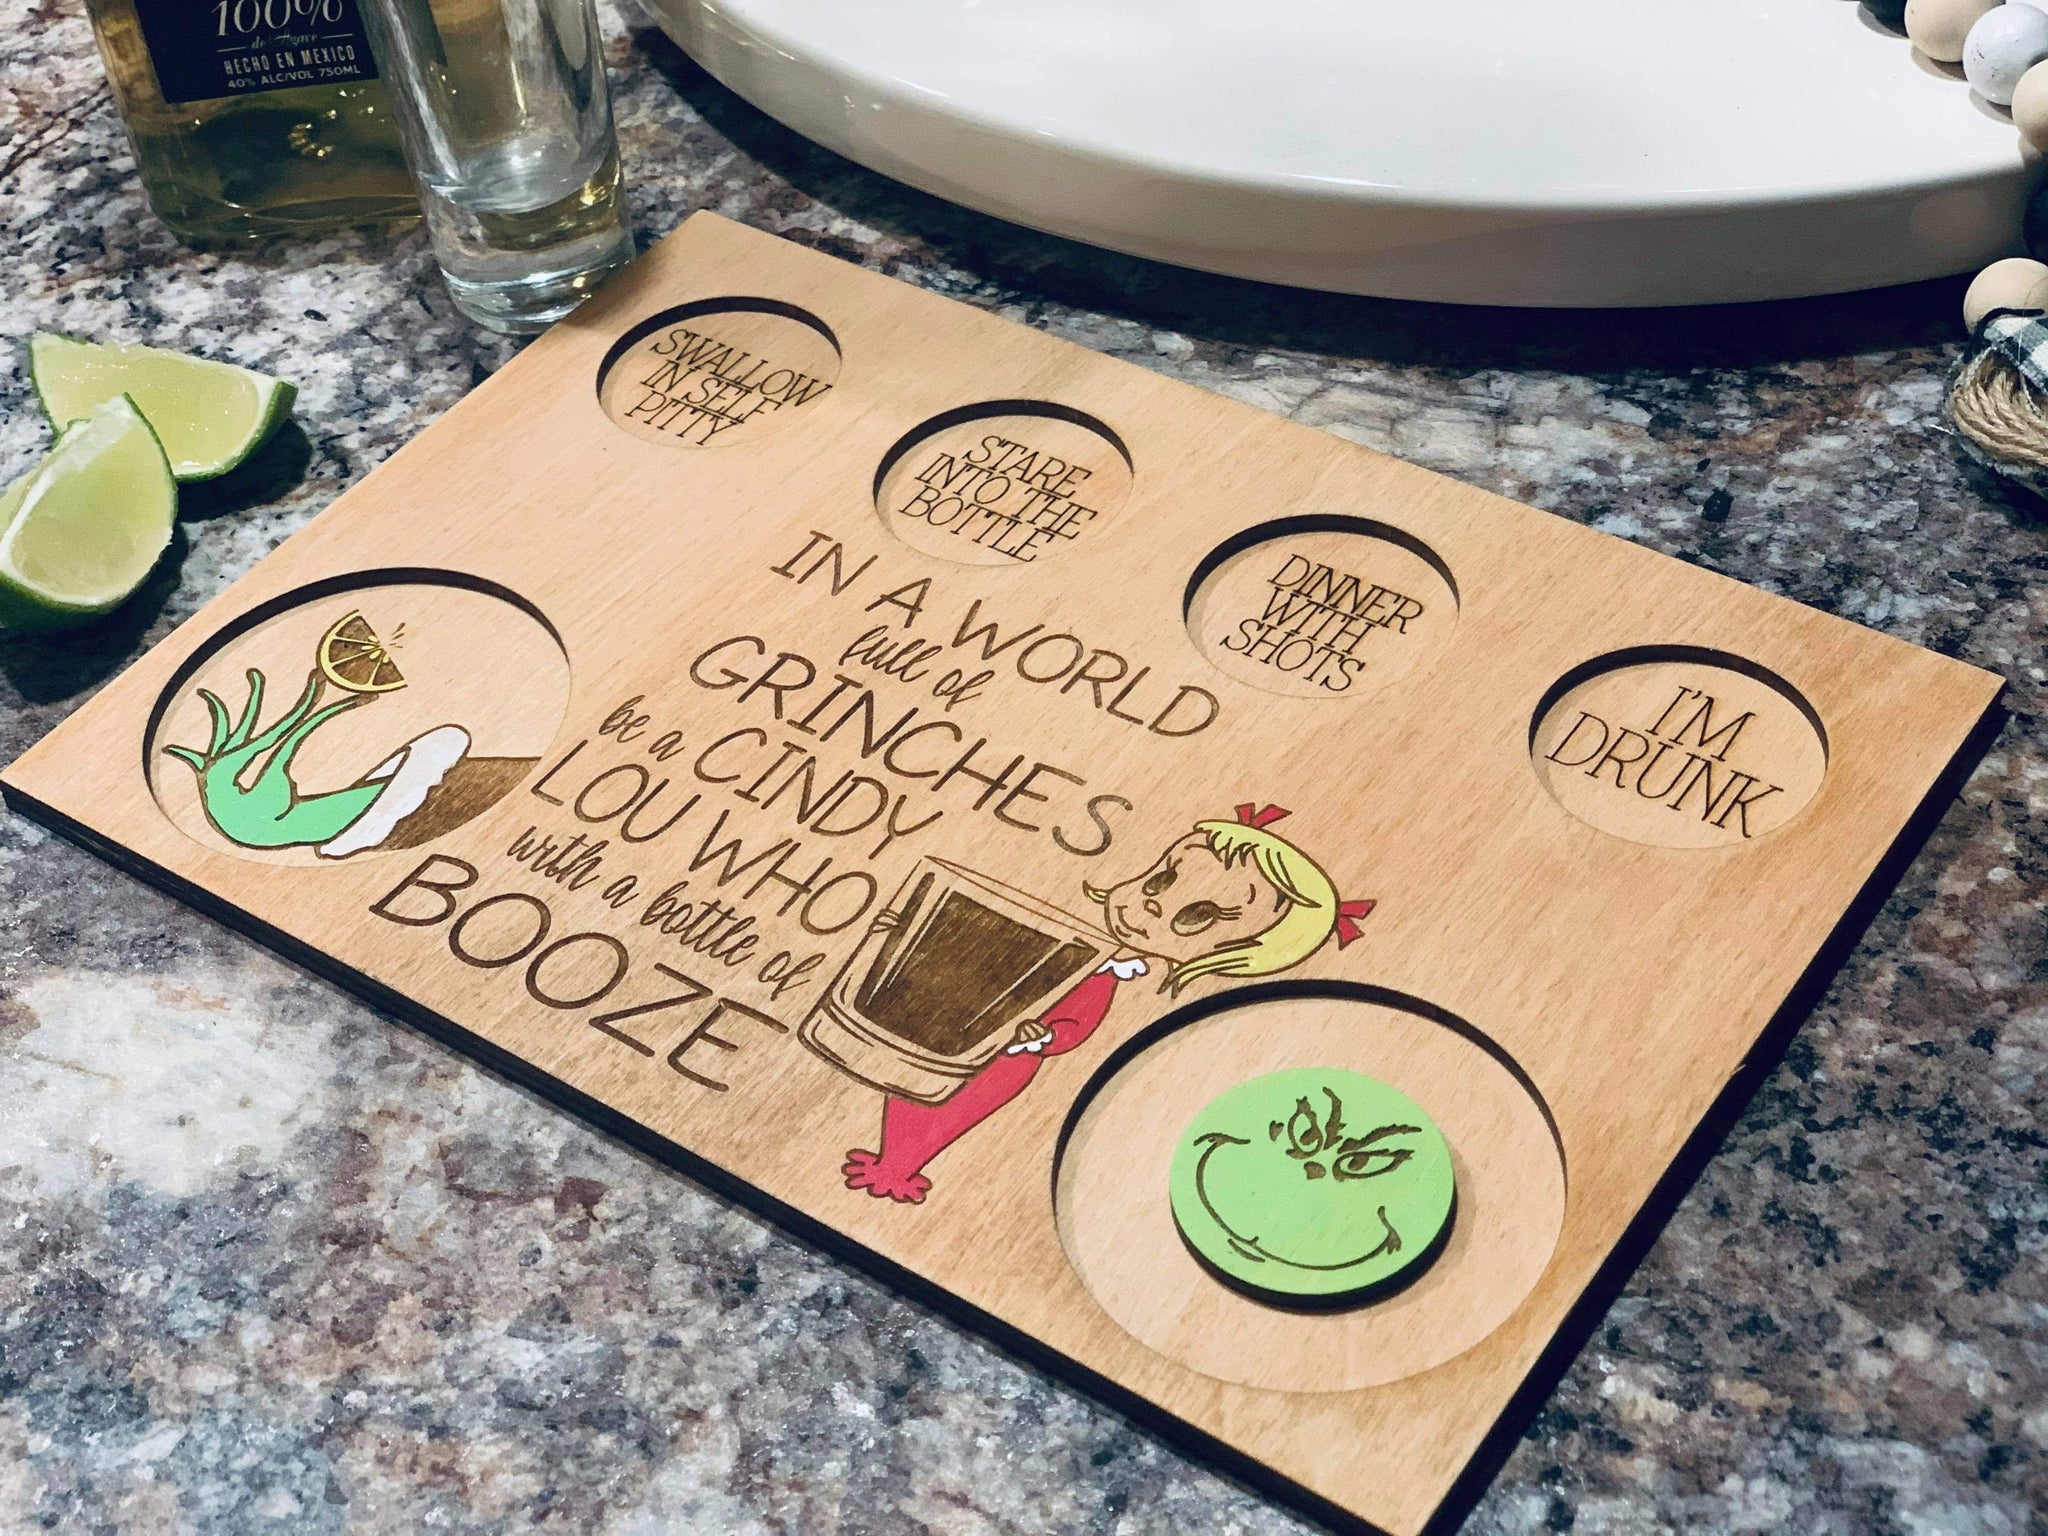 100%
de Agave
HECHO EN MEXICO
40% ALC/VOL 750ML
SWALLOW
IN SELF
PITTY
STARE
INTO THE
BOTTLE
DINNER
WITH
SHOTS
I'M
DRUNK
IN A WORLD
full of
GRINCHES
be a CINDY
LOU WHO
with a bottle of
BOOZE